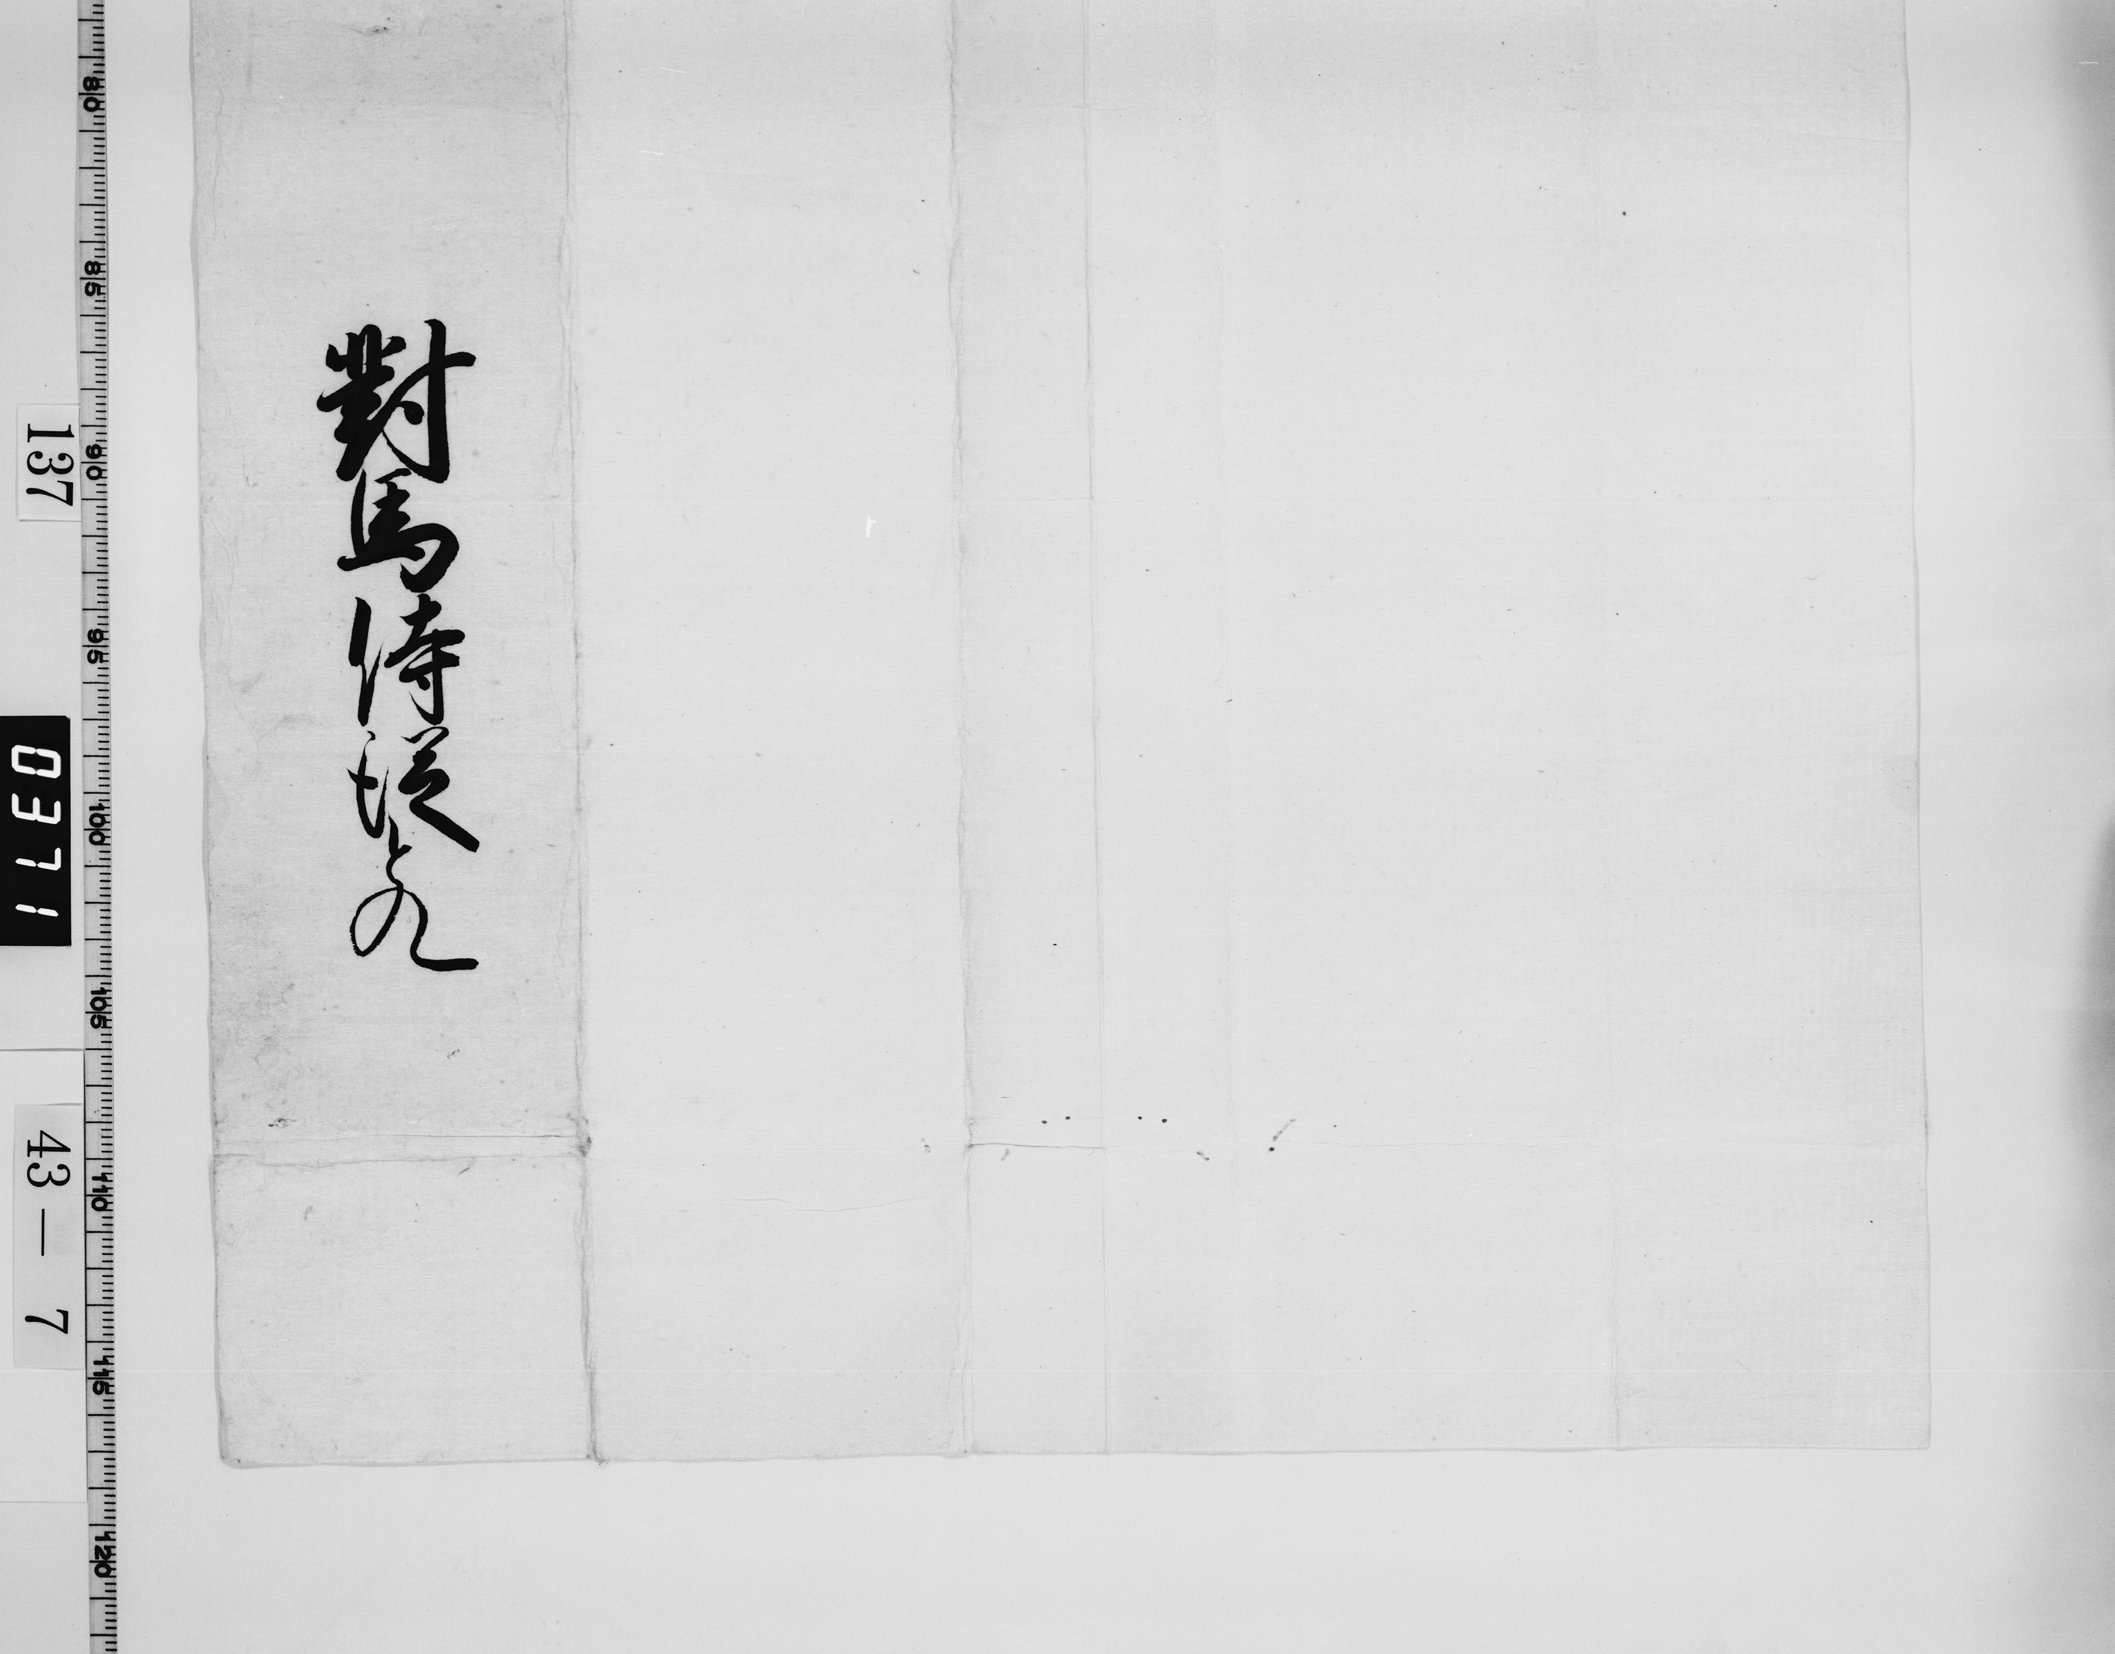 對馬侍従とのへ
137
0371
43－7
80
85
90
95
100
105
110
115
120